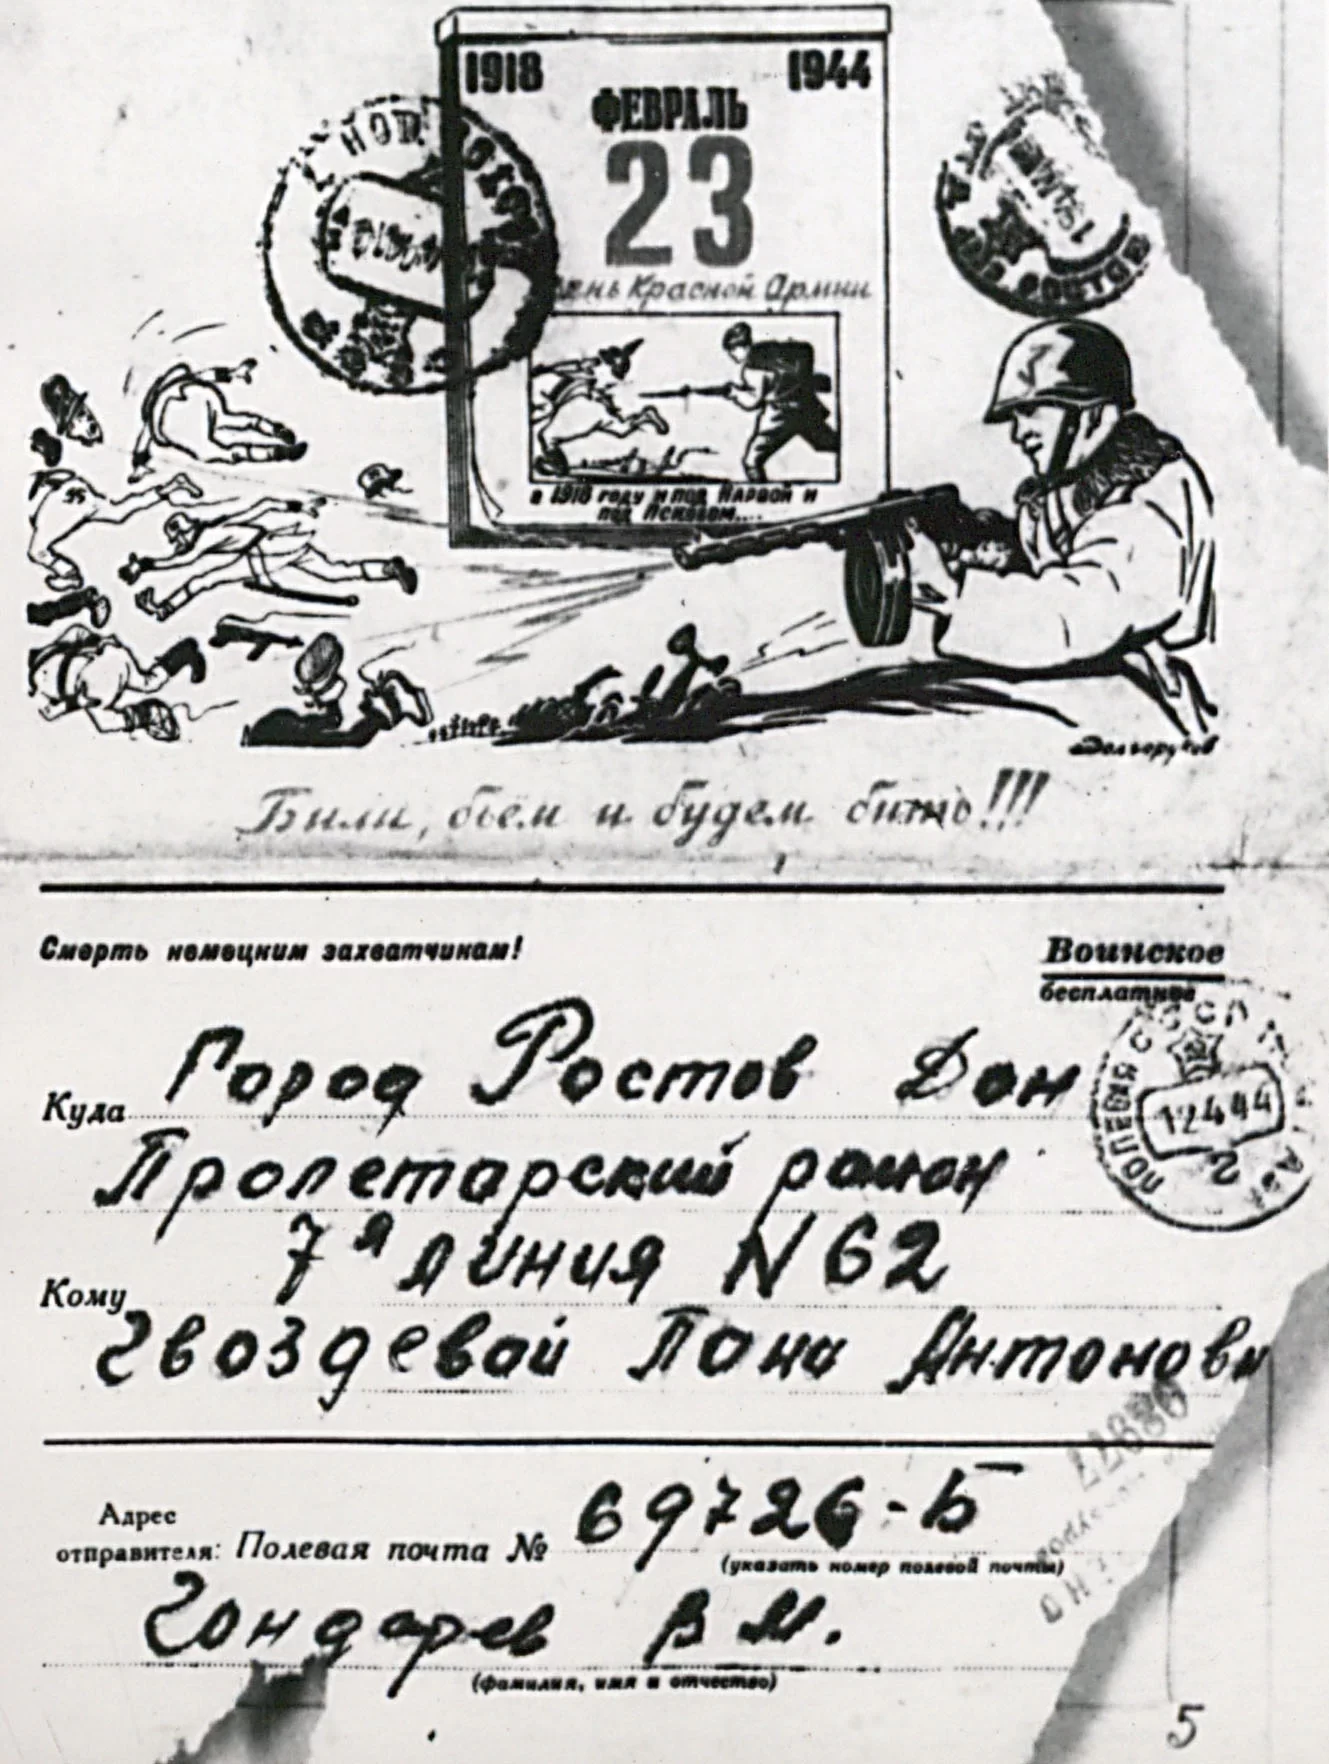 1918 1944
ФЕВРАЛЬ
23
День Красной Армии
в 1918 году и под Нарвой и
под Псковом....
Долгоруков
Били, бьём и будем бить!!!
Смерть немецким захватчикам!
Воинское
бесплатное
Куда Город Ростов Дон
Пролетарский район
7я линия N 62
Кому
Гвоздевой Пана Антоновн
ПОЛЕВАЯ СССР ПОЧТА
12 4 44
2
22886
Адрес
отправителя: Полевая почта № 69726-Б
(указать номер полевой почты)
Гондарев В М.
(фамилия, имя и отчество)
5